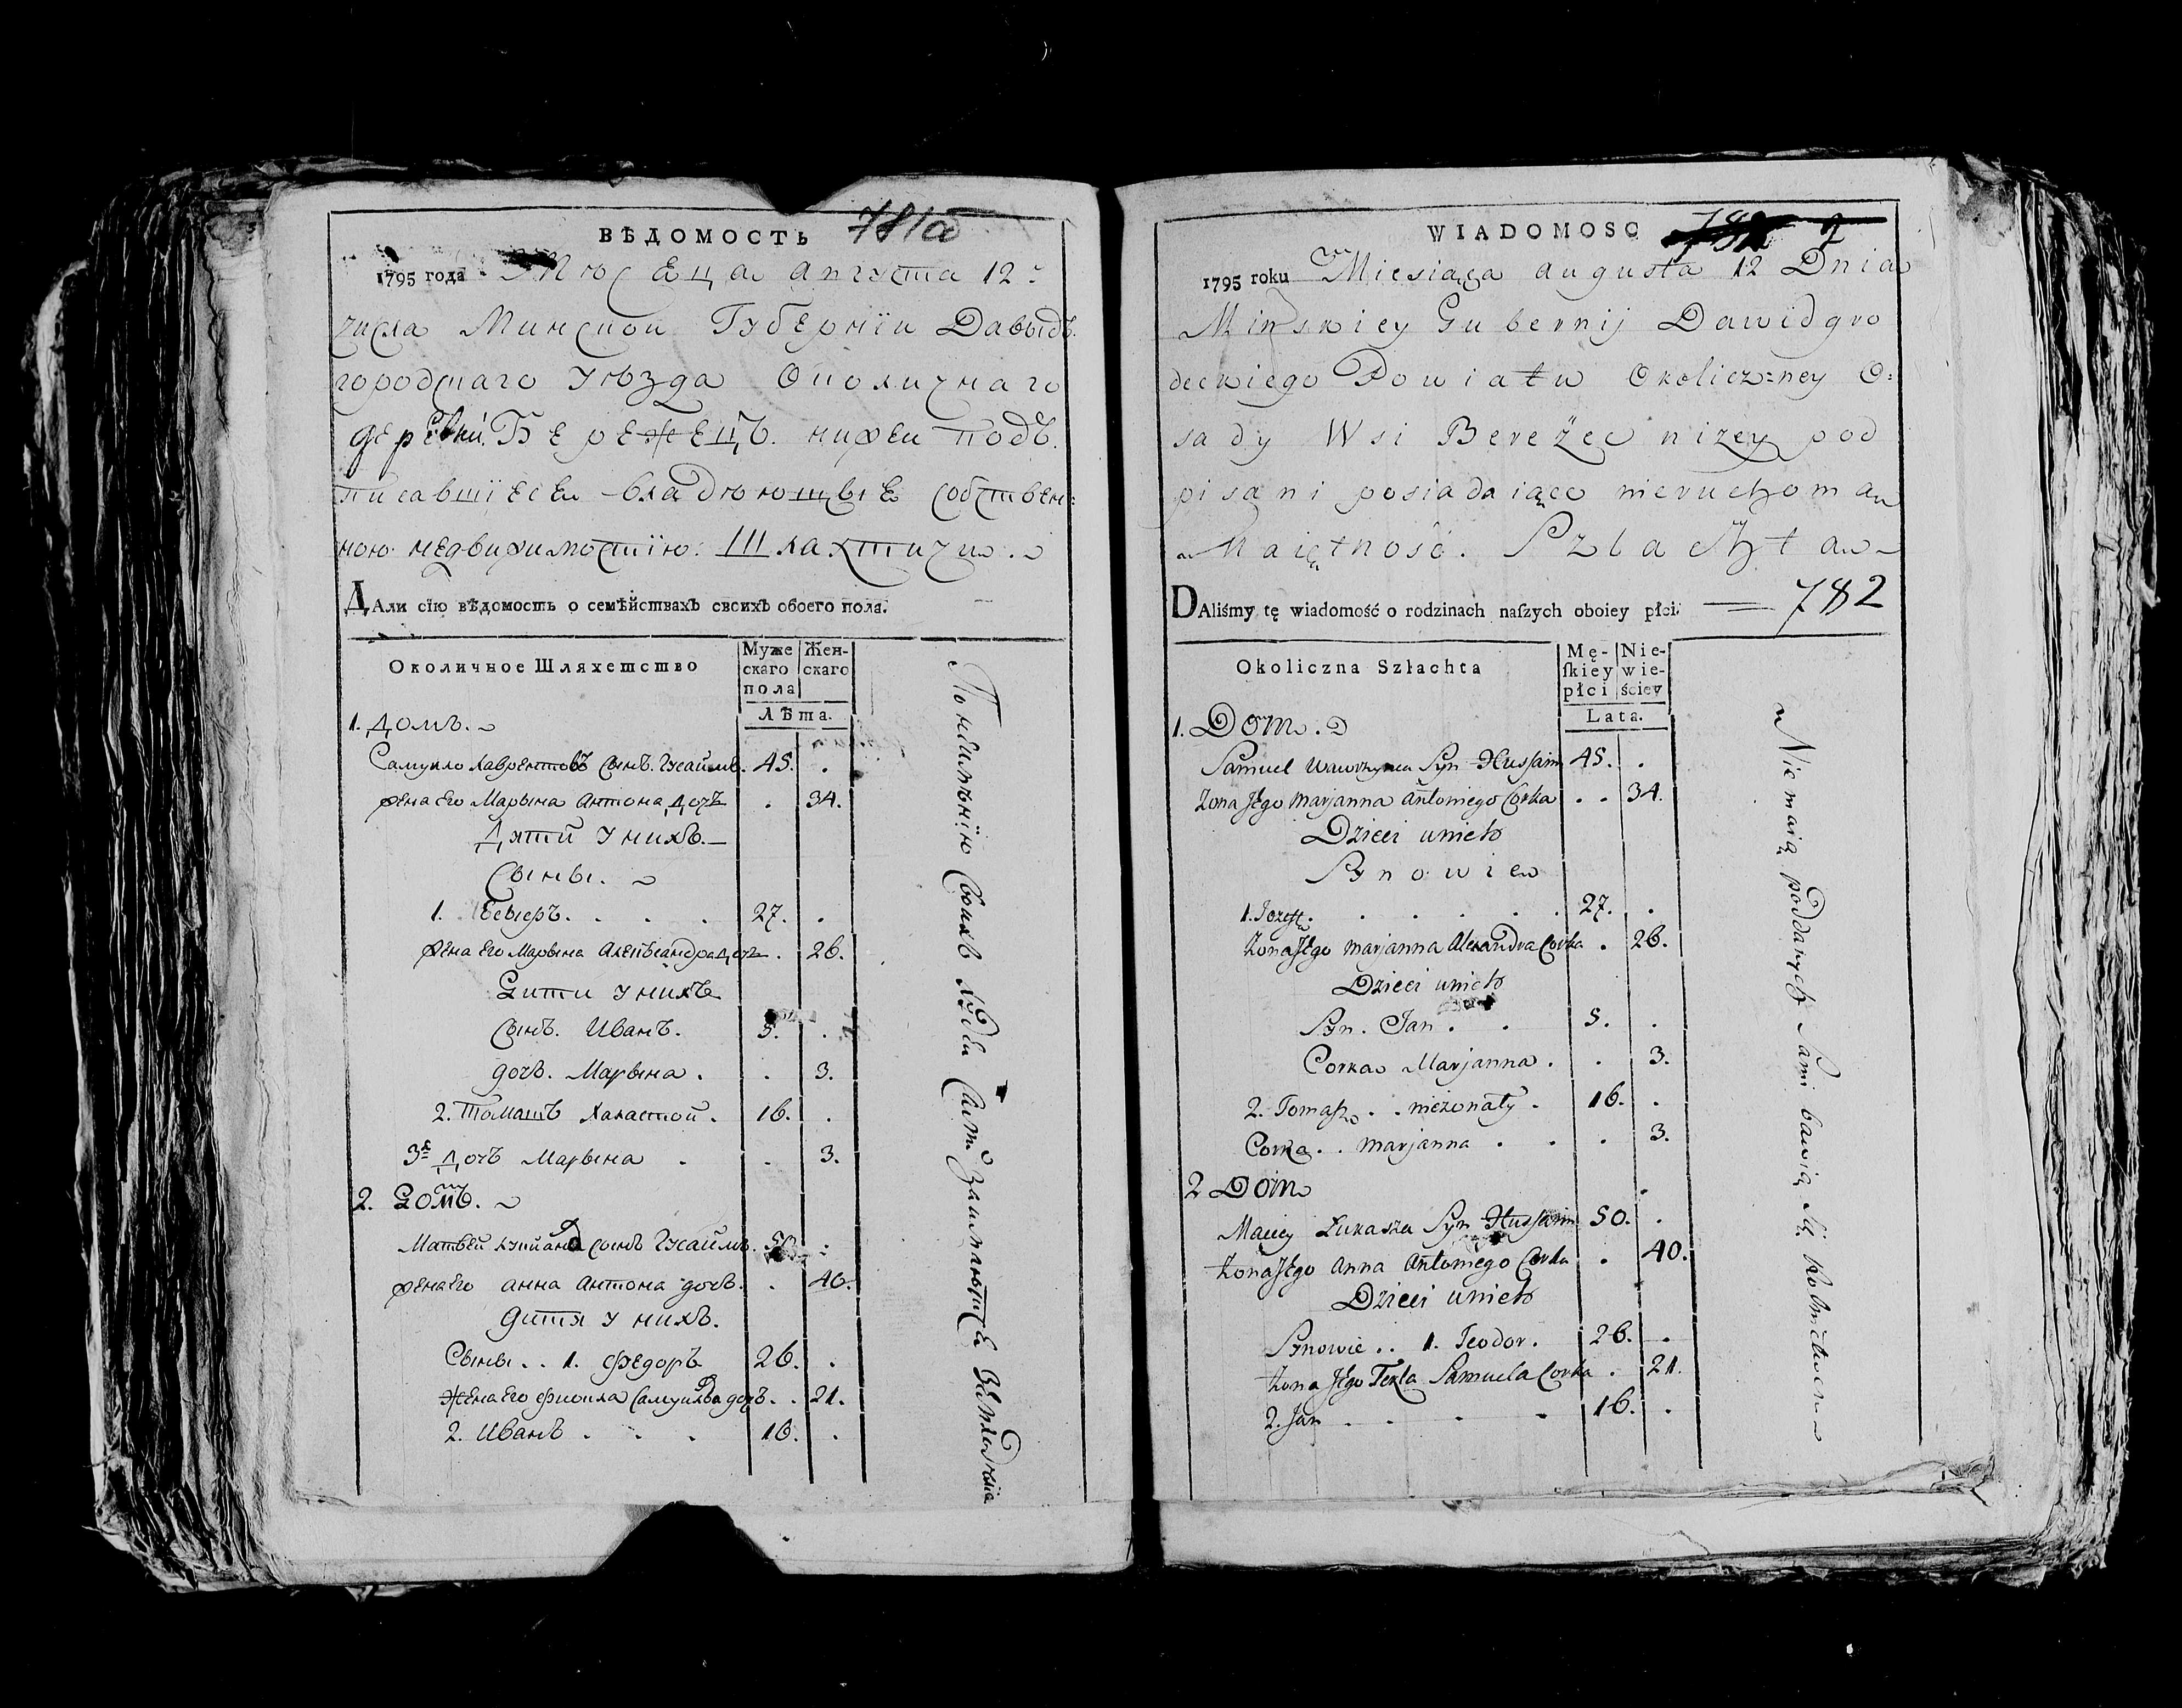 ВѢДОМОСТЬ 781а
1795 года Мѣсеца августа 12:
числа Минской Губернїи Давыдъ
городскаго уѣзда Околичнаго
деревни Бережецъ. нижеи подъ
писавшїесеи владѣющые собствен:
ною недвижимостїю: Шлахтичи.
ДАли сїю вѣдомость о семѣйствахъ своихъ обоего пола.
Околичное Шляхетство
Муже скаго пола
Жен- скаго
Лѣта.
1. Домъ.
Самуило Лаврентовъ сынъ. 45. .
жена его Марьяна Антона дочъ . 34.
Дяти у нихъ.
Сыны.
1. . . . 27. .
жена его Марьяна Александра дочъ . 26.
Дити у нихъ
сынъ. Иванъ. 5. .
дочъ. Марьяна . . 3.
2. Томашъ Халастой . 16. .
3я Дочъ Марьяна . . 3.
2. Домъ.
Матвей сынъ
жена его анна антона дочъ. . 40.
дитя у нихъ.
Сыны . . 1. Федоръ 26. .
Жена его Самуилва дочъ . . 21.
2. Иванъ . . . 16. .
своихъ
WIADOMOSC
1795 roku Miesiąca augusta 12 Dnia
Minskiey Gubernij Dawidgro
deckiego Powiatu Okolicz=ney O=
sady Wsi Bereżec niżey pod
pisani posiadaiąco nieruchoma
Maiętność. Szlachta
DAliśmy tę wiadomość o rodzinach naſzych oboiey płci. 782
Okoliczna Szlachta
Mę- ſkiey płci
Nie- wie- ściey
Lata.
1. Dom.
Samuel Wawrzynca Syn Hussaim 45. .
Zona Jego Marjanna Antoniego Corka . . 34.
Dzieci unich
Synowie
1. Jozef. . . . . . 27. .
Zona Jego Marjanna Alexandra Corka . 26.
Dzieci unich
Syn. Jan . . 5. .
Corka Marjanna . . 3.
2. Tomasz . . nieżonaty . 16. .
Corka . . Marjanna . . . 3.
2 Dom
Maciey Łukasza Syn Hussaim 50. .
Zona Jego Anna Antoniego Corka . 40.
Dzieci unich
Synowie . . 1. Teodor. 26. .
Zona Jego Tekla Samuela Corka . 21.
2. Jan . . . . 16. .
Nie maią poddanych Sami bawią się Rolnictwem